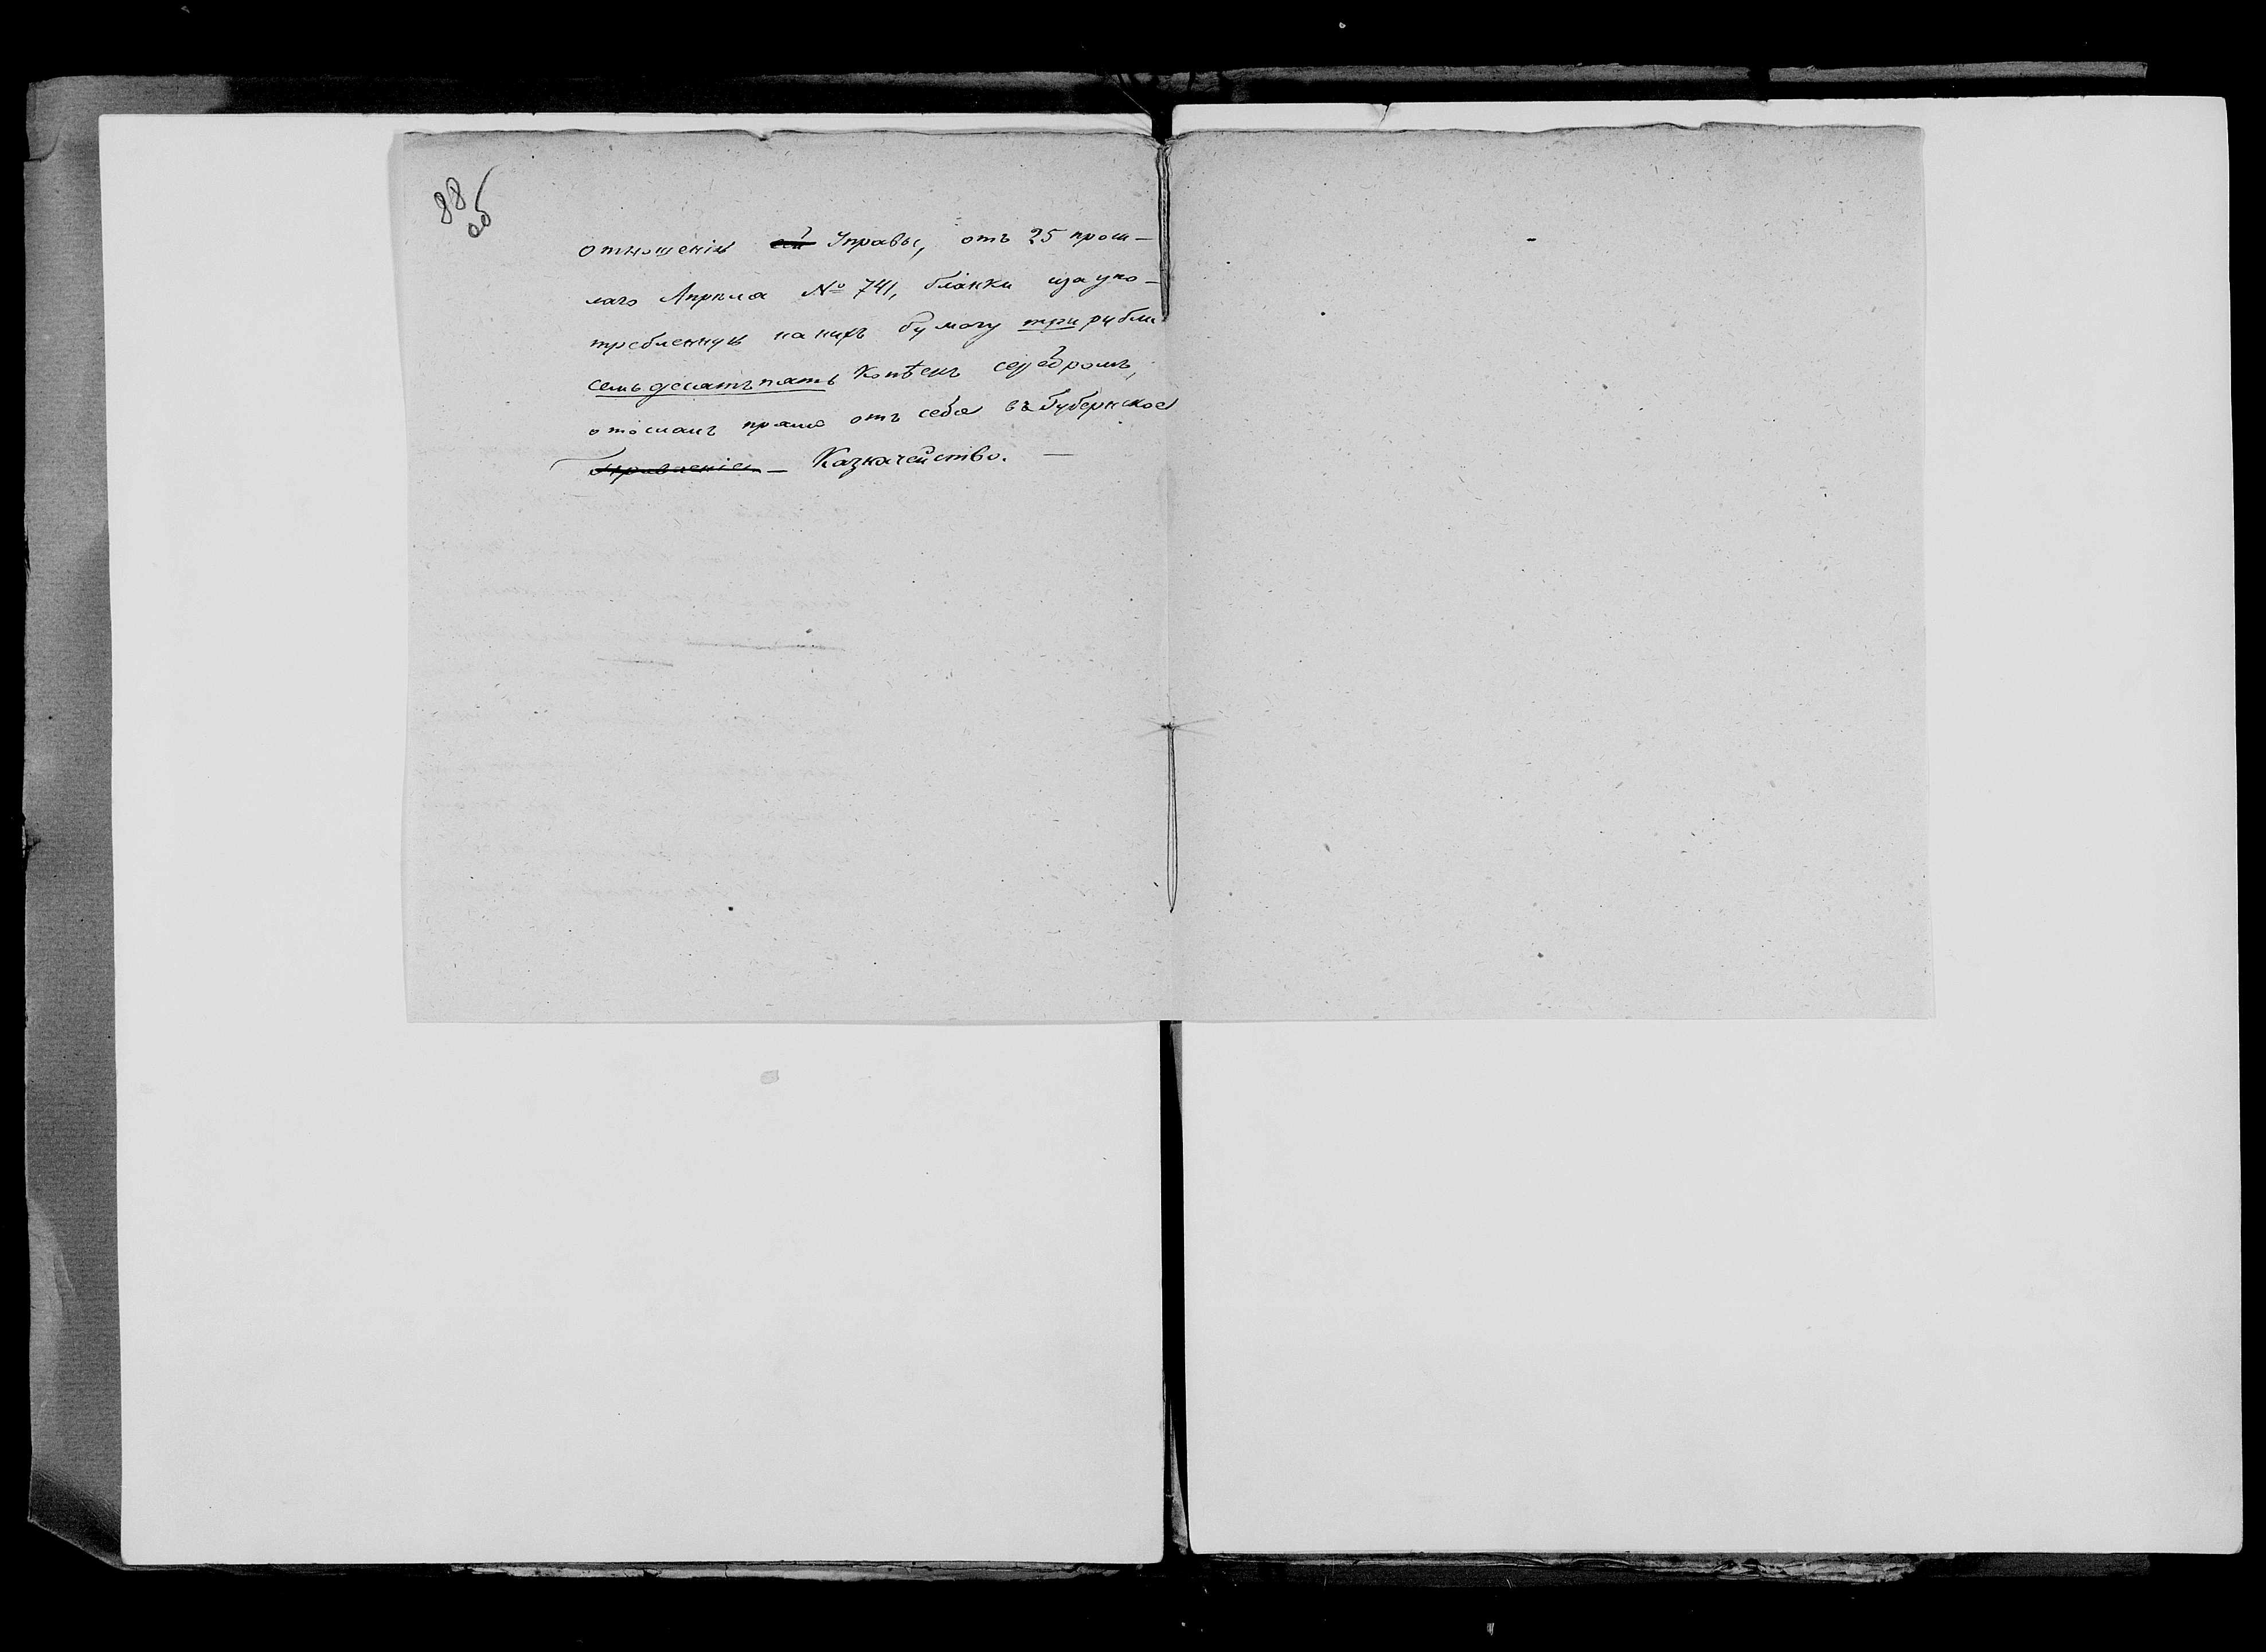 88
об
отношенія сей Управы, отъ 25 прош-
лаго Апрѣля № 741, бланки и за упо-
требленную на нихъ бумагу три рубли
семьдесятъ пять копѣекъ серебромъ,
отослалъ прямо отъ себя въ Губернское
Правленіе – Казначейство. —